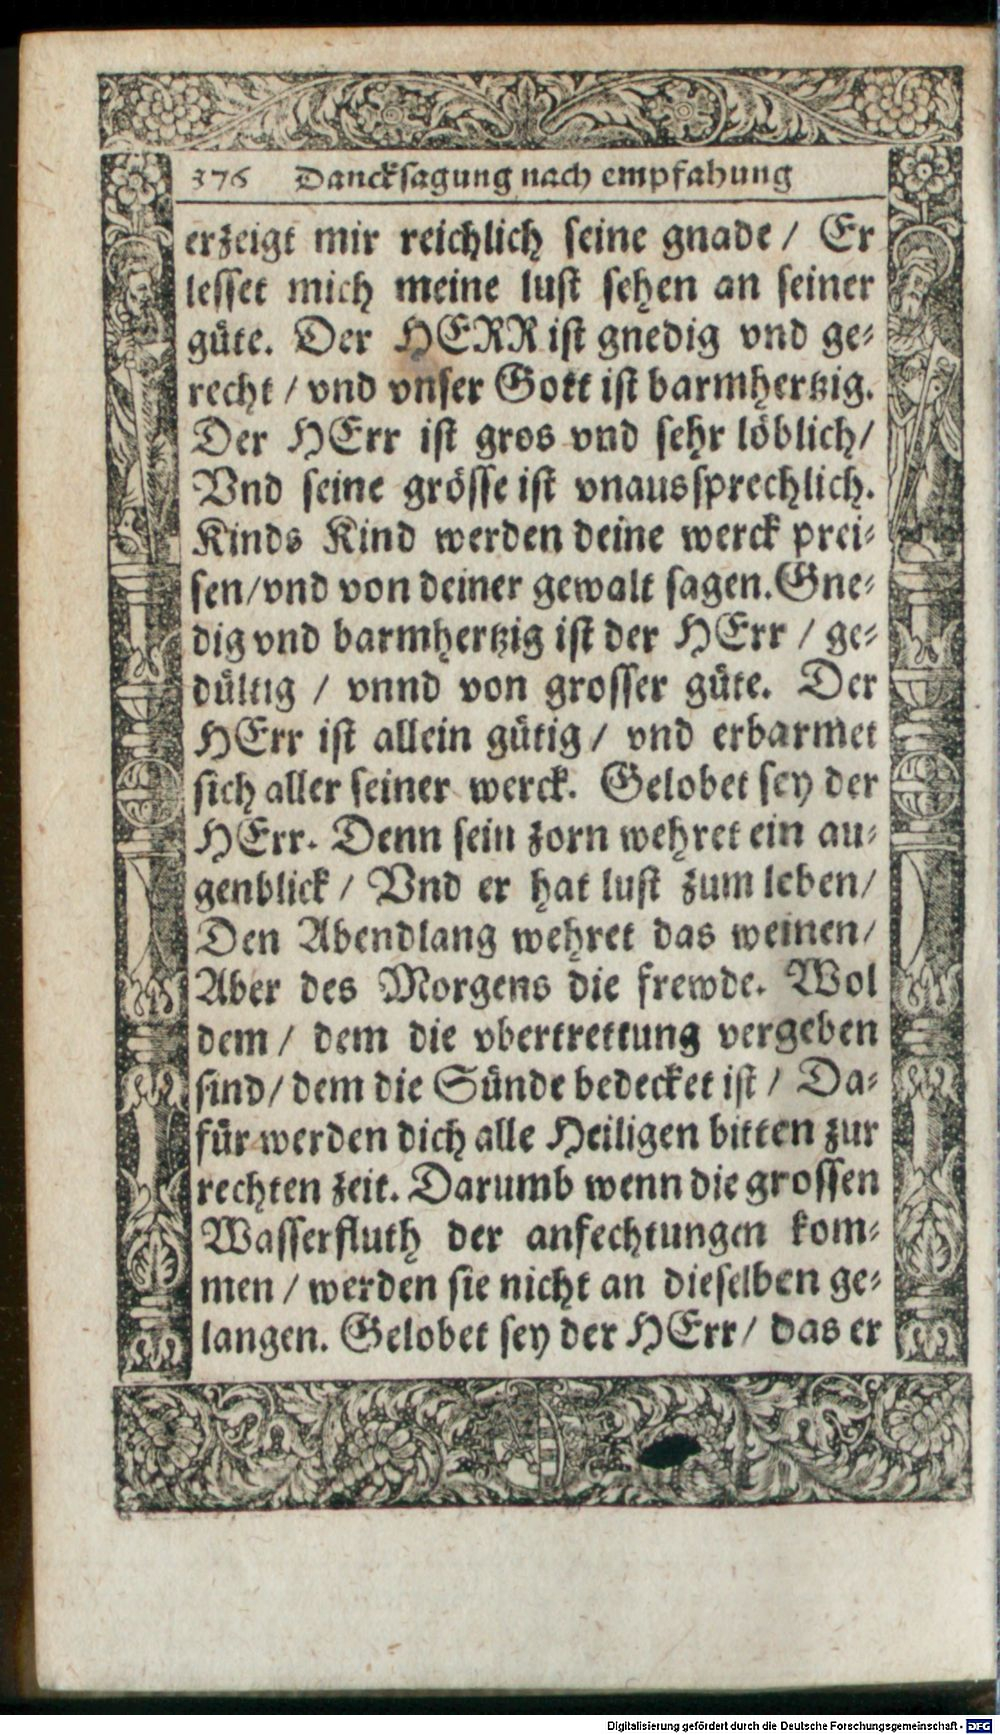 376 Dancksagung nach empfahung
erzeigt mir reichlich seine gnade / Er
lesset mich meine lust sehen an seiner
güte. Der HERR ist gnedig vnd ge-
recht / vnd vnser Gott ist barmhertzig.
Der HErr ist gros vnd sehr löblich/
Vnd seine grösse ist vnaussprechlich.
Kinds Kind werden deine werck prei-
sen/vnd von deiner gewalt sagen. Gne-
dig vnd barmhertzig ist der HErr / ge-
dültig / vnnd von grosser güte. Der
HErr ist allein gütig / vnd erbarmet
sich aller seiner werck. Gelobet sey der
HErr. Denn sein zorn wehret ein au-
genblick / Vnd er hat lust zum leben/
Den Abendlang wehret das weinen/
Aber des Morgens die frewde. Wol
dem / dem die vbertrettung vergeben
sind/ dem die Sünde bedecket ist / Da-
für werden dich alle Heiligen bitten zur
rechten zeit. Darumb wenn die grossen
Wasserfluth der anfechtungen kom-
men / werden sie nicht an dieselben ge-
langen. Gelobet sey der HErr/ das er
Digitalisierung gefördert durch die Deutsche Forschungsgemeinschaft - DFG